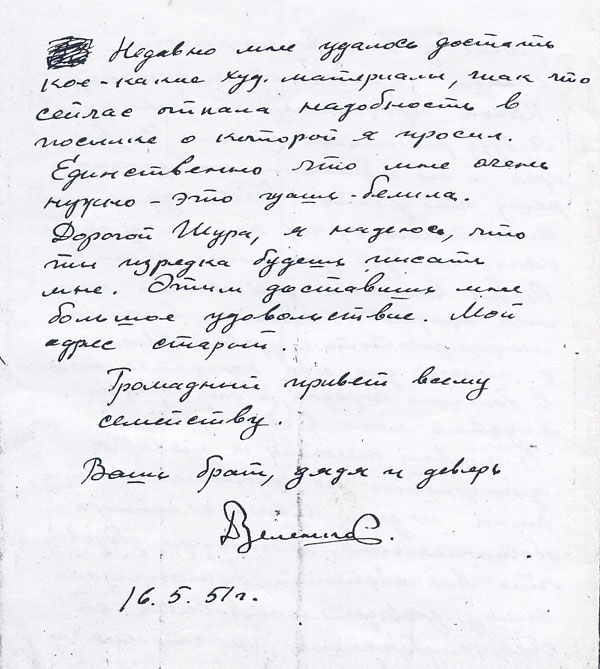 Недавно мне удалось достать
кое-какие худ. материалы, так что
сейчас отпала надобность в
посылке о которой я просил.
Единственно что мне очень
нужно - это гуашь-белила.
Дорогой Шура, я надеюсь, что
ты изредка будешь писать
мне. Этим доставишь мне
большое удовольствие. Мой
адрес старый.
Громадный привет всему
семейству.
Ваш брат, дядя и деверь
16.5.51г.